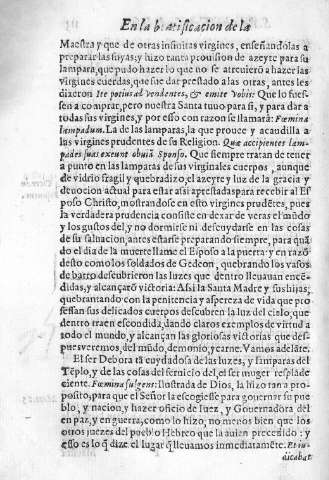 En la beatificacion de la
Maestra y que de otras infinitas virgines, enseñandolas a
preparar las suyas: y hizo tanta prouision de azeyte para su
lampara, que pudo hazer lo que no se atreuierõ a hazer las
virgines cuerdas, que fue dar prestado a las otras, antes les
dixeron Ite potius ad vendentes, & emite vobis: Que lo fues-
sen a comprar, pero nuestra Santa tuuo para si, y para dar a
todas sus virgines, y por esso con razon se llamarà: Fœmina
lampadum. La de las lamparas, la que prouee y acaudilla a
las virgines prudentes de su Religion. Quæ accipientes lam-
pades suas exeunt obuiã Sponso. Que siempre tratan de tener
a punto en las lamparas de sus virginales cuerpos, aunque
de vidrio fragil y quebradizo, el azeyte y luz de la gracia y
deuocion actual para estar assi aprestadas para recebir al Es
poso Christo, mostrandose en esto virgines prudẽtes, pues
la verdadera prudencia consiste en dexar de veras el mũdo
y los gustos del, y no dormirse ni descuydarse en las cosas
de su saluacion, antes estarse preparando siempre, para quã
do el dia de la muerte llame el Esposo a la puerta: y en razõ
desto como los soldados de Gedeon, quebrando los vasos
de barro descubrieron las luzes que dentro lleuauan encẽ-
didas, y alcançarõ victoria: Assi la Santa Madre y sus hijas,
quebrantando con la penitencia y aspereza de vida que pro
fessan sus delicados cuerpos descubren la luz del cielo, que
dentro traen escondida, dando claros exemplos de virtud a
todo el mundo, y alcançan las gloriosas victorias que des-
pues veremos, del mũdo, demonio, y carne. Vamos adelãte.
El ser Debora tã cuydadosa de las luzes, y lamparas del
Tẽplo, y de las cosas del seruicio del, el ser muger resplãde
ciente. Fœmina fulgens: Ilustrada de Dios, la hizo tan a pro-
posito, para que el Señor la escogiesse para gouernar su pue
blo, y nacion, y hazer oficio de Iuez, y Gouernadora del
en paz, y en guerra, como lo hizo, no menos bien que los
otros juezes del pueblo Hebreo que la auian precedido: y
esso es lo q̃ dize el lugar q̃ lleuamos inmediatamẽte. Et iu-
dicabat